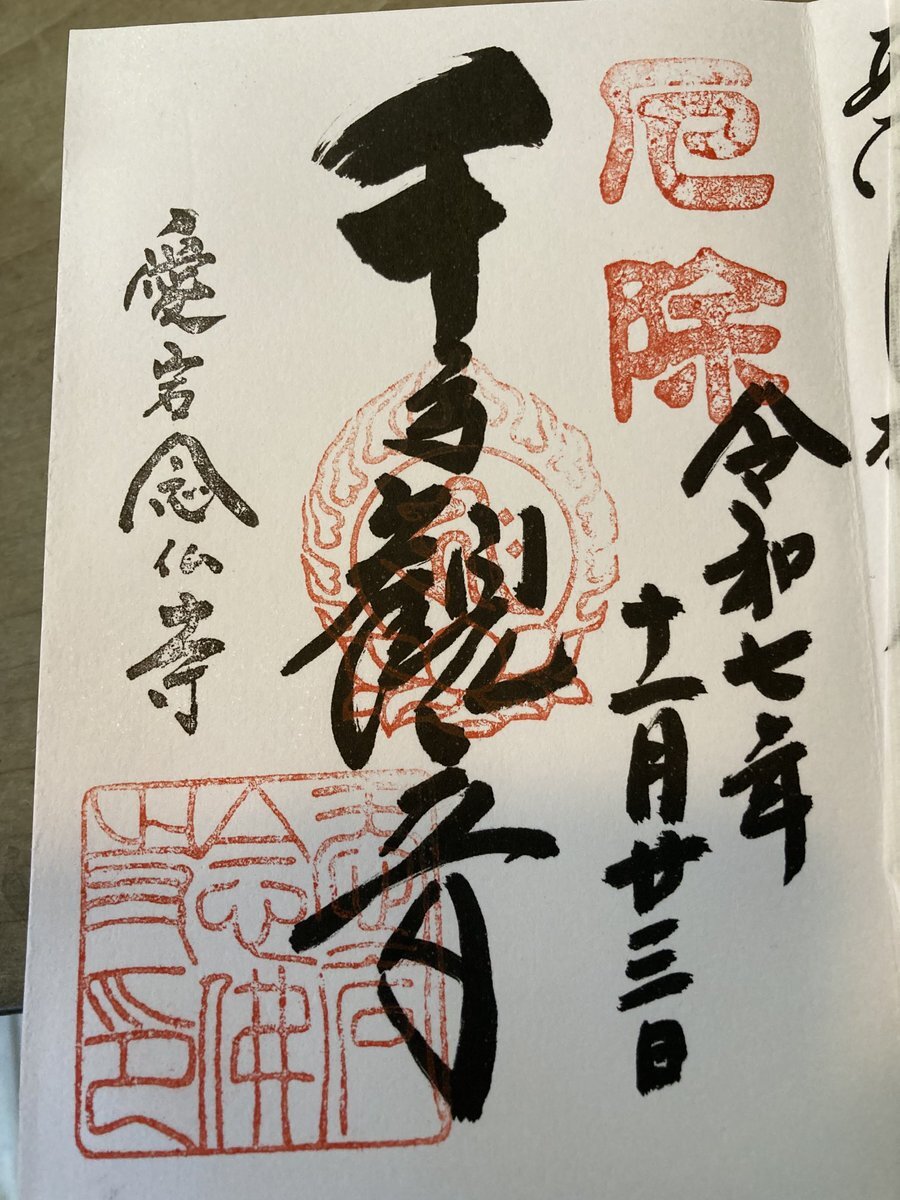 厄除
令和七年
十一月廿三日
千手観音
愛宕念仏寺
愛宕
念佛
寺印